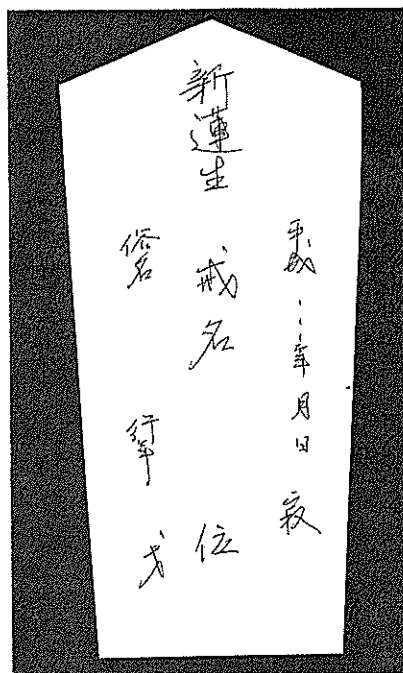 平成、、、年月日 寂
新蓮生 戒名 位
俗名 行年 才